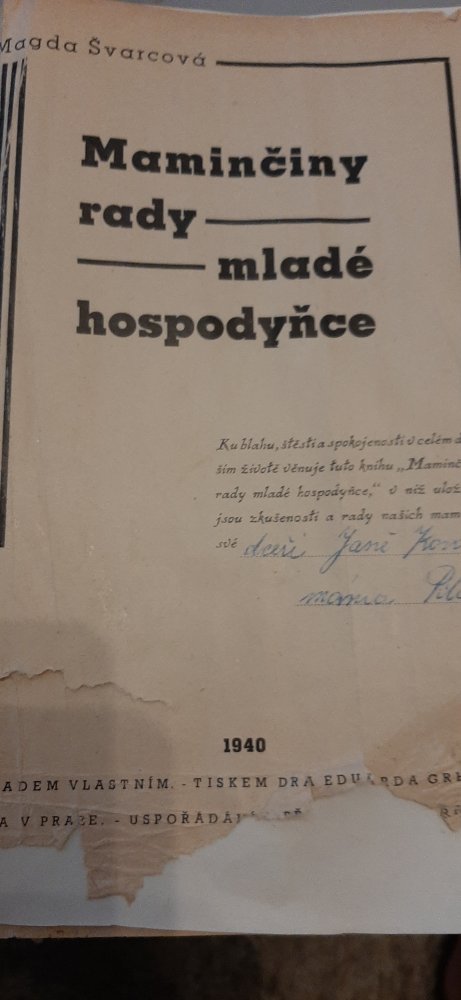 Magda Švarcová
Maminčiny
rady
mladé
hospodyňce
Ku blahu, štěstí a spokojenosti v celém d
ším životě věnuje tuto knihu „Maminč
rady mladé hospodyňce," v níž ulož
jsou zkušenosti a rady našich mam
své dceři Janě
máma
1940
ADEM VLASTNÍM. - TISKEM DRA EDUARDA GR
A V PRAZE. - USPOŘÁDA